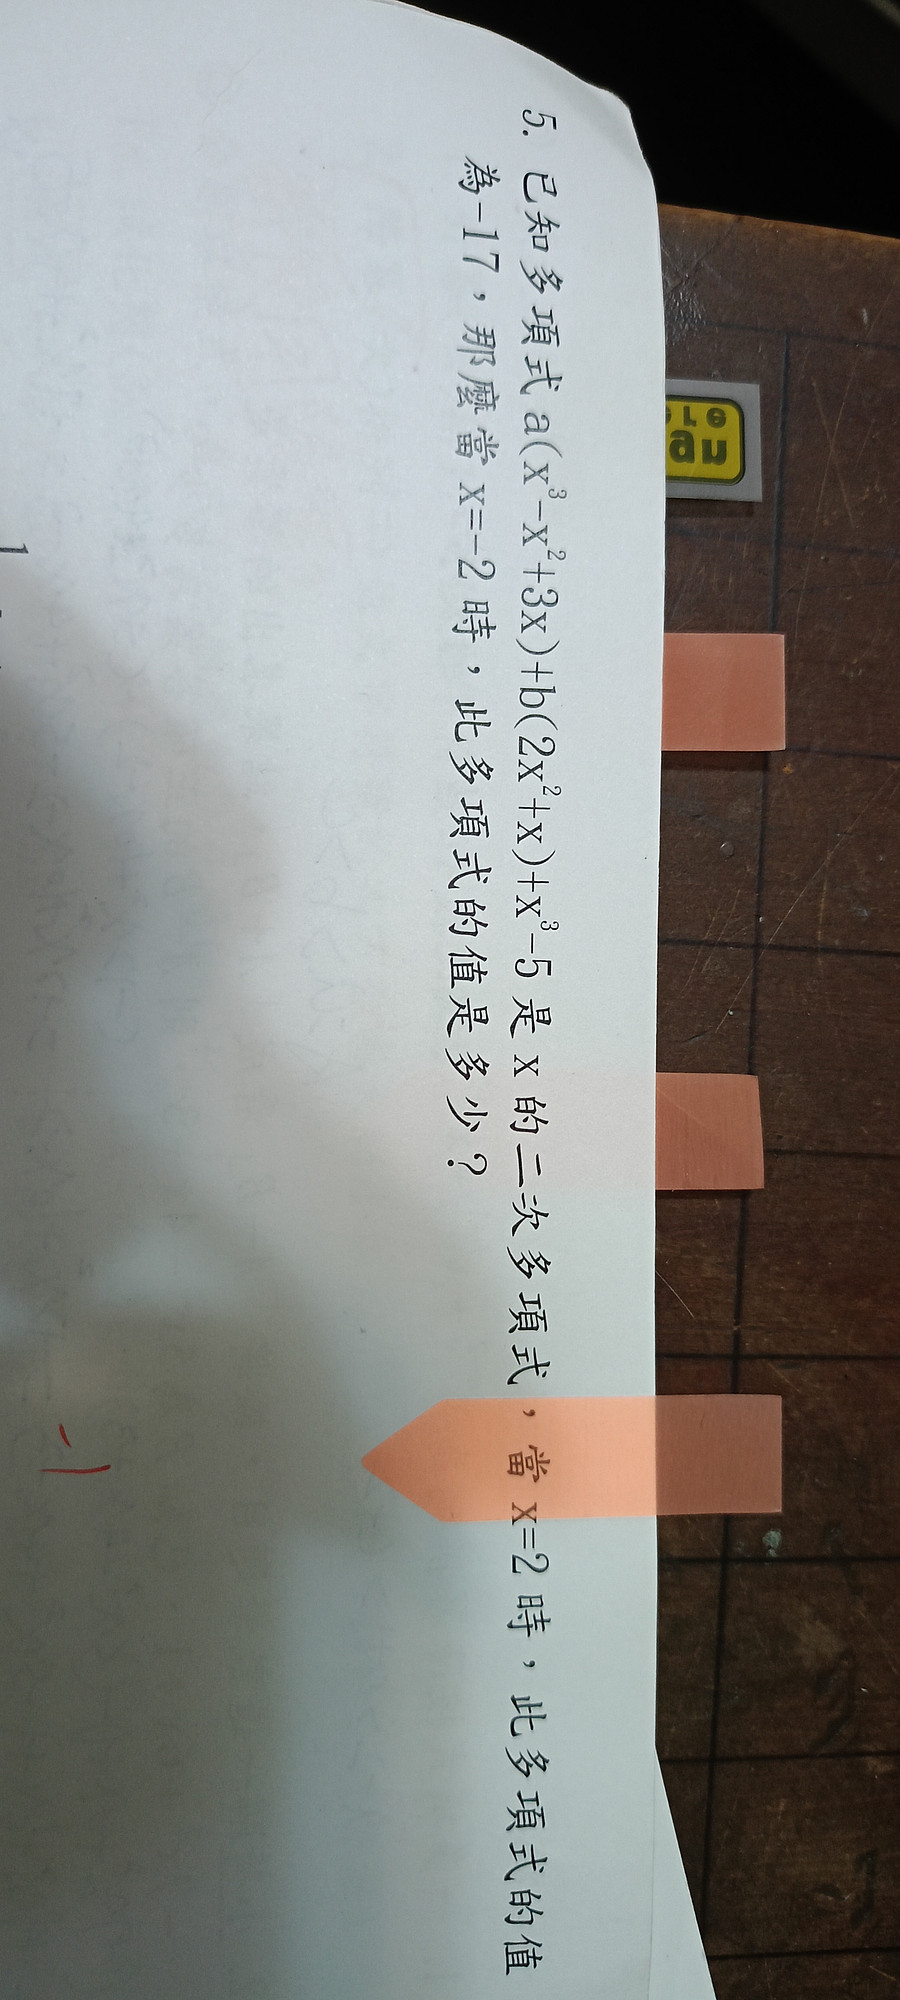 5. 已知多項式 a(x³-x²+3x)+b(2x²+x)+x³-5 是 x 的二次多項式，當 x=2 時，此多項式的值
為-17，那麼當 x=-2 時，此多項式的值是多少？